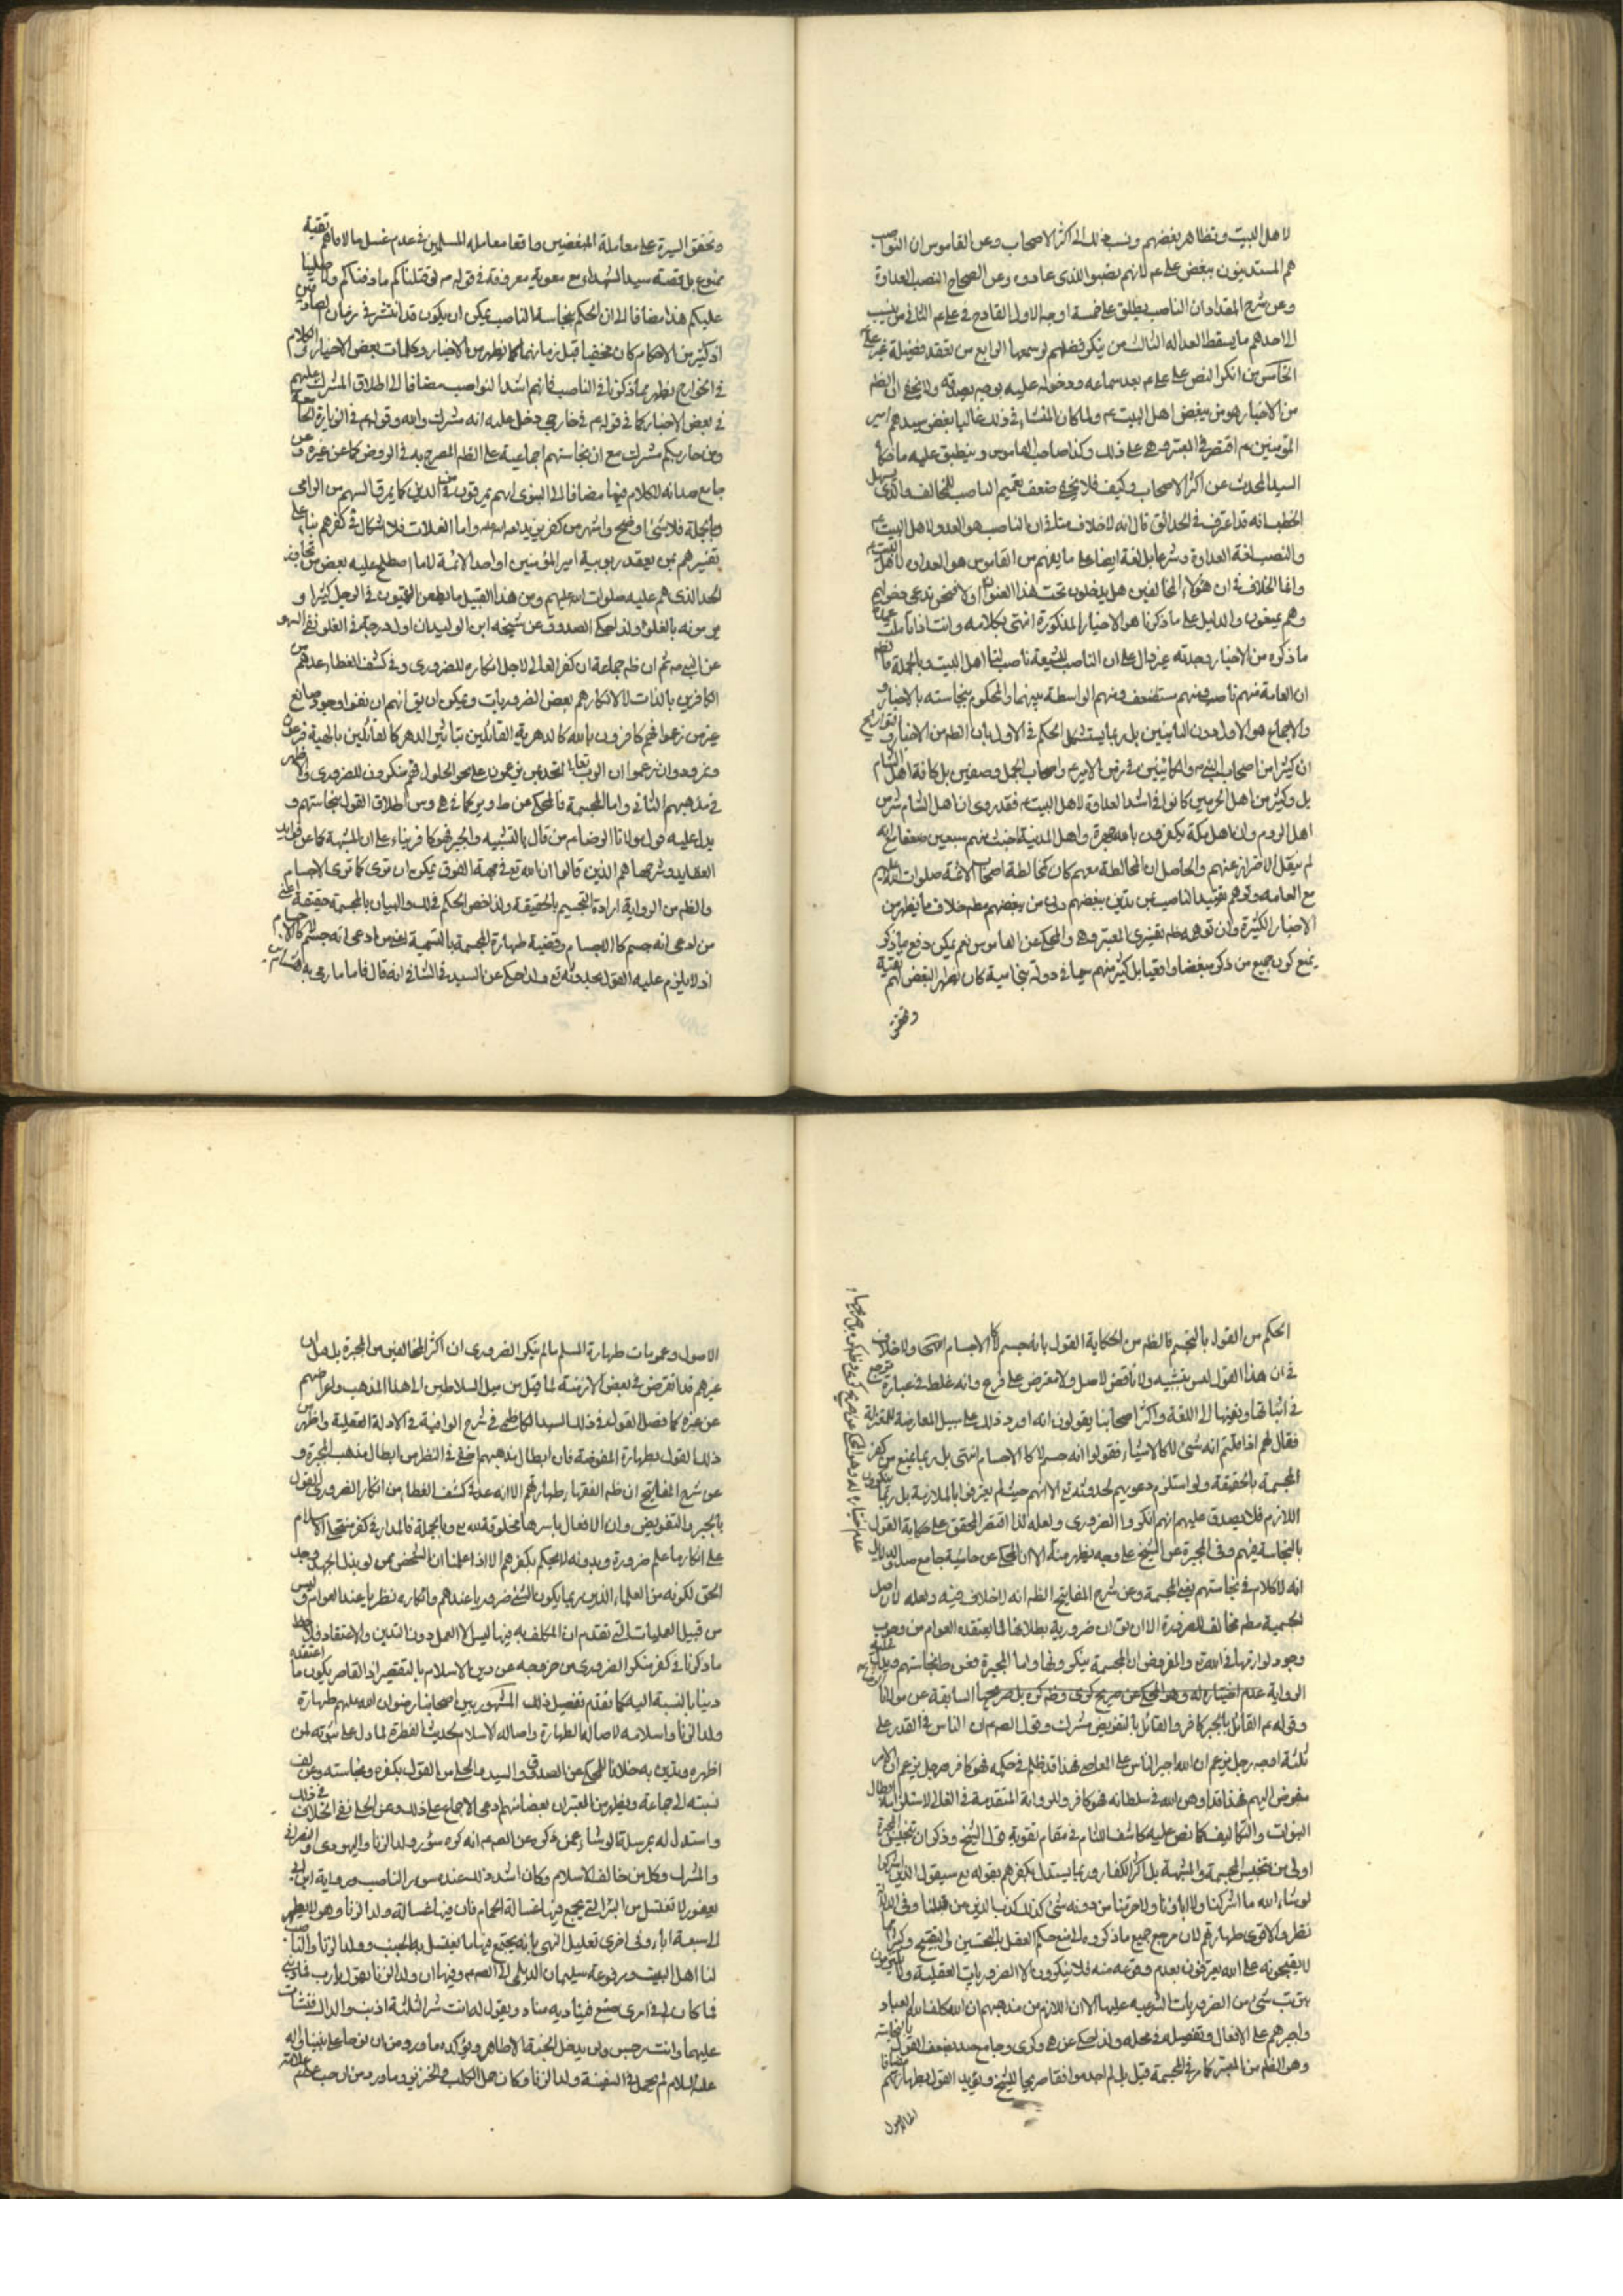 لاهل البيت وتظاهر ببغضهم ونسب ذلك الى اكثر الاصحاب وعن القاموس ان النواصب
هم المستدينون ببغض على ع لانهم نصبوا الذى عادوه وعن الصحاح النصب العداوة
وعن شرح المقداد ان الناصب يطلق على خمسة اوجه الاول القادح فى على ع الثانى من ينسب
الى احدهم ما يسقط العدالة الثالث من ينكر فضلهم لو سمعها الرابع من اعتقد فضيلة غير على
الخامس من انكر النص على على ع بعد سماعه ووصوله عليه بوجه يصدقه ولا يخفى ان الظ
من الاخبار هو من يبغض اهل البيت ع ولما كان المنشاء فى ذلك غالبا بغض سيدهم امير
المؤمنين ع اقتصر فى المعتبر على ذلك وكذا صاحب القاموس وينطبق عليه ما حكاه
السيد المحدث عن اكثر الاصحاب وكيف فلا يخفى ضعف تعميم الناصب للمخالف والذى يسهل
الخطب انه قد اعترف فى الحدائق قال انه لا خلاف منا فى ان الناصب هو العدو لاهل البيت ع
والنصب لغة العداوة وشرعا بل لغة ايضا على ما يفهم من القاموس هو العداوة لاهل البيت ع
وانما الخلاف فى ان هؤلاء المخالفين هل يدخلون تحت هذا العنوان او لا فنحن ندعى دخولهم
وهم يمنعون والدليل على ما ذكرنا هو الاخبار المذكورة انتهى كلامه وانت اذا تاملت
ما ذكره من الاخبار وجدته غير دال على ان الناصب للشيعة ناصب لنا اهل البيت وبالجملة
ان العامة منهم ناصب ومنهم مستضعف ومنهم الواسطة بينهما والمحكوم بنجاسته بالاخبار
والاجماع هو الاول دون الثانيين بل ربما يستشكل الحكم فى الاول بان الظ من الاخبار والتواريخ
ان كثيرا من اصحاب النبى ص والكائنين فى زمن الامير ع واصحاب الجمل وصفين بل كافة اهل الشام
بل وكثير من اهل الحرمين كانوا فى اشد العداوة لاهل البيت ع فقد روى ان اهل الشام شر من
اهل الروم وان اهل مكة يكفرون بالله جهرة واهل المدينة اخبث منهم سبعين ضعفا مع انه
لم ينقل الاحتراز عنهم والحاصل ان المخالطة معهم كان كمخالطة اصحاب الائمة صلوات الله عليهم
مع العامة
الاخبار الكثيرة
يمنع كون جميع من ذكر مبغضا واقعيا بل كثير منهم سيما فى دولة بنى امية كان يظهر البغض لهم تقية
وتحقق
وتحقق السيرة على معاملة المبغضين واقعا معاملة المسلمين فى عدم غسل ما لاقاهم
ممنوع بل قصة سيد الشهداء ع مع معوية معروفة فى قوله ع لو قتلناكم ما دفناكم ولا صلينا
عليكم هذا مضافا الى ان الحكم بنجاسة الناصب يمكن ان يكون قد انتشر فى زمان الصادقين
اذ كثير من الاحكام كان مخفيا قبل زمانهما كما يظهر من الاخبار وكلمات بعض الاخيار والكلام
فى الخوارج يظهر مما ذكرنا فى الناصب فانهم اشد النواصب مضافا الى اطلاق المشرك عليهم
فى بعض الاخبار كما فى قوله ع فى خارجى دخل عليه انه مشرك والله وقوله ع فى الزيارة الجامعة
ومن حاربكم مشرك مع ان نجاستهم اجماعية على الظ المصرح به فى الروض كما عن غيره وعن
جامع صد انه لا كلام فيها مضافا الى النبوى انهم يمرقون من الدين كما يمرق السهم من الرامى
وبالجملة فلا شئ اوضح واشهر من كفر يزيد لعنه الله واما الغلات فلا اشكال فى كفرهم بناء على
تفسيرهم بمن يعتقد ربوبية امير المؤمنين او احد الائمة لا ما اصطلح عليه بعض من تجاوز
الحد الذى هم عليه صلوات الله عليهم ومن هذا القبيل ما يطعن القميون فى الرجل كثيرا و
يرمونه بالغلو ولذا حكى الصدوق عن شيخه ابن الوليد ان اول درجة فى الغلو نفى السهو
عن النبى ص ثم ان ظ جماعة ان كفر الغالى لاجل انكاره للضرورى وفى كشف الغطاء عدهم من
الكافرين بالذات لا لانكارهم بعض الضروريات ويمكن ان يق انهم ان نفوا وجود صانع
غير من زعموا فهم كافرون بالله كالدهرية القائلين بتاثير الدهر كالقائلين بالهية فرعون
ونمرود وان زعموا ان الرب تعالى اتحد بمن يدعون على نحو الحلول فهم منكرون للضرورى والظ
فى مذهبهم الثانى واما المجسمة فالمحكى عن ط
يدل عليه قول مولانا الرضا ع من قال بالتشبيه والجبر فهو كافر بناء على ان المشبهة كما عن قواعد
العقايد وشرحها هم الذين قالوا ان الله تع فى جهة الفوق يمكن ان ترى كما ترى الاجسام
والظ من الرواية ارادة التجسيم بالحقيقة ولذا خص الحكم فى ذلك والبيان بالمجسمة حقيقة اعنى
من ادعى انه جسم كالاجسام وقضية طهارة المجسمة بالتسمية اعنى من ادعى انه جسم لا كالاجسام
اذ لا يلزم عليه القول بحدوثه تع ولذا حكى عن السيد فى الشافى انه قال فاما ما رمى به هشام من
الحكم من القول بالتجسيم فالظ من الحكاية القول بانه جسم لا كالاجسام ولا خلاف
فى ان هذا القول ليس بتشبيه ولا ناقض لاصل ولا معترض على فرع وانه غلط فى عبارة يرجع
فى اثباتها ونفيها الى اللغة واكثر اصحابنا يقولون انه اورد ذلك على سبيل المعارضة للمعتزلة
فقال لهم اذا قلتم انه شئ لا كالاشياء فقولوا انه جسم لا كالاجسام انتهى بل ربما يمنع من كفر
المجسمة بالحقيقة ولو استلزم دعويهم لحدوثه تع الا انهم حيث لم يعترفوا بالملازمة بل ربما ينكرون
اللازم فلا يصدق عليهم انهم انكروا الضرورى ولعله لذا اقتصر المحقق على حكاية القول
بالنجاسة فيهم وفى المجبرة عن الشيخ على وجه يظهر منه الا ان المحكى عن حاشية جامع صد
انه لا كلام فى نجاستهم يعنى المجسمة وعن شرح المفاتيح الظ انه لا خلاف فيه ولعله لان اصل
الجسمية مط مخالف للضرورة الا ان يق ان ضرورية بطلانها لما يعتقده العوام من وجوب
وجود لوازمها فى الله تع والمفروض ان المجسمة ينكرونها واما المجبرة فعن ط نجاستهم ويدل عليه
الرواية
وقوله ع القائل بالجبر كافر والقائل بالتفويض مشرك وقول الصادق ع ان الناس فى القدر على
ثلثة اوجه رجل يزعم ان الله اجبر الناس على المعاصى فهذا قد ظلم فى حكمه فهو كافر ورجل يزعم ان الامر
مفوض اليهم فهذا قد اوهن الله فى سلطانه فهو كافر وللرواية المتقدمة فى الغالى لاستلزامه ابطال
النبوات والتكاليف كما نص عليه كاشف اللثام فى مقام تقوية قول الشيخ وذكر ان تنجيس المجبرة
اولى من تنجيس المجسمة والمشبهة بل اكثر الكفار وربما يستدل بكفرهم بقوله تع سيقول الذين اشركوا
لو شاء الله ما اشركنا ولا اباؤنا ولا حرمنا من دونه شئ كذلك كذب الذين من قبلنا وفى الادلة
نظر والاقوى طهارتهم لان مرجع جميع ما ذكروه الى منع حكم العقل بالتحسين والتقبيح وكثيرا ما
لا يقبحونه على الله يعترفون بعدم وقوعه منه فلا ينكرون الا الضروريات العقلية ولا يلتزمون
بترتب شئ من الضروريات الشرعية عليها الا ان اللازم من مذهبهم ان الله كلف العباد
واجبرهم على الافعال وتفصيله فى محله ولذا حكى عن هى وكرى وجامع صد ضعف القول بالنجاسة
وهو الظ من المعتبر كما مر فى المجسمة قيل بل لم اجد موافقا صريحا للشيخ ويؤيد القول بطهارتهم مضافا
الى الاصول
الاصول وعمومات طهارة المسلم ما لم ينكر الضرورى ان اكثر المخالفين من المجبرة بل قيل ان
غيرهم قد انقرض فى بعض الازمنة لما قيل من ميل السلاطين الى هذا المذهب واعراضهم
عن غيره كما فصل القول فى ذلك السيد الكاظمى فى شرح الوافية فى الادلة العقلية واظهر من
ذلك القول بطهارة المفوضة فان ابطال مذهبهم اخفى فى النظر من ابطال مذهب المجبرة و
عن شرح المفاتيح ان ظ الفقهاء طهارتهم الا انه عد فى كشف الغطاء من انكار الضرورى القول
بالجبر والتفويض وان الافعال باسرها مخلوقة لله تع وبالجملة فالمدار فى كفر منتحلى الاسلام
على انكار ما علم ضرورة وبدونه لا يحكم بكفرهم الا اذا علمنا ان الشخص ممن لو بذل الجهد وجد
الحق لكونه من العلماء الذين ربما يكون الشئ ضروريا عندهم وانكاره نظريا عند العوام وليس
من قبيل العمليات التى تقدم ان المكلف به فيها ليس الا العمل دون التدين والاعتقاد فلاحظ
ما ذكرنا فى كفر منكر الضرورى من خروجه عن دين الاسلام بالتقصير اذ القاصر يكون ما اعتقده
دينا بالنسبة اليه كما تقدم تفصيل ذلك المشهور بين اصحابنا رضوان الله عليهم طهارة
ولد الزنا واسلامه لاصالة الطهارة واصالة الاسلام لحديث الفطرة لما دل على ثبوته لمن
اظهره وتدين به خلافا للمحكى عن الصدوق والسيد والحلى من القول بكفره ونجاسته وعن لف
نسبته الى جماعة ويظهر من المعتبر ان بعضا منهم ادعى الاجماع على ذلك وعن الحلى نفى الخلاف فى ذلك
واستدل له بمرسلة الوشاء عمن ذكره عن الصادق ع انه كره سؤر ولد الزنا واليهودى والنصرانى
والمشرك وكل من خالف الاسلام وكان اشد ذلك عنده سؤر الناصب ورواية ابن ابى
يعفور لا تغتسل من البئر التى يجتمع فيها غسالة الحمام فان فيها غسالة ولد الزنا وهو لا يطهر
الى سبعة اباء وفى اخرى تعليل النهى بانه يجتمع فيها ما يغتسل به الجنب وولد الزنا والناصب
لنا اهل البيت ومرفوعة سليمان الديلمى الى الصادق ع وفيها ان ولد الزنا يقول يا رب فما ذنبى
فما كان لى فى امرى صنع فيناديه مناد ويقول له انت شر الثلثة اذنب والداك فنشأت
عليهما وانت رجس ولن يدخل الجنة الا طاهر ويؤكده ما ورد من ان نوحا على نبينا واله و
عليه السلام لم يحمل فى السفينة ولد الزنا وكان حمل الكلب والخنزير وما ورد من ان حب على ع علامة